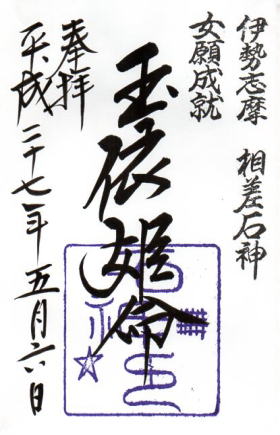 伊勢志摩 相差石神
女願成就
玉依姫命
奉拝
平成二十七年五月六日